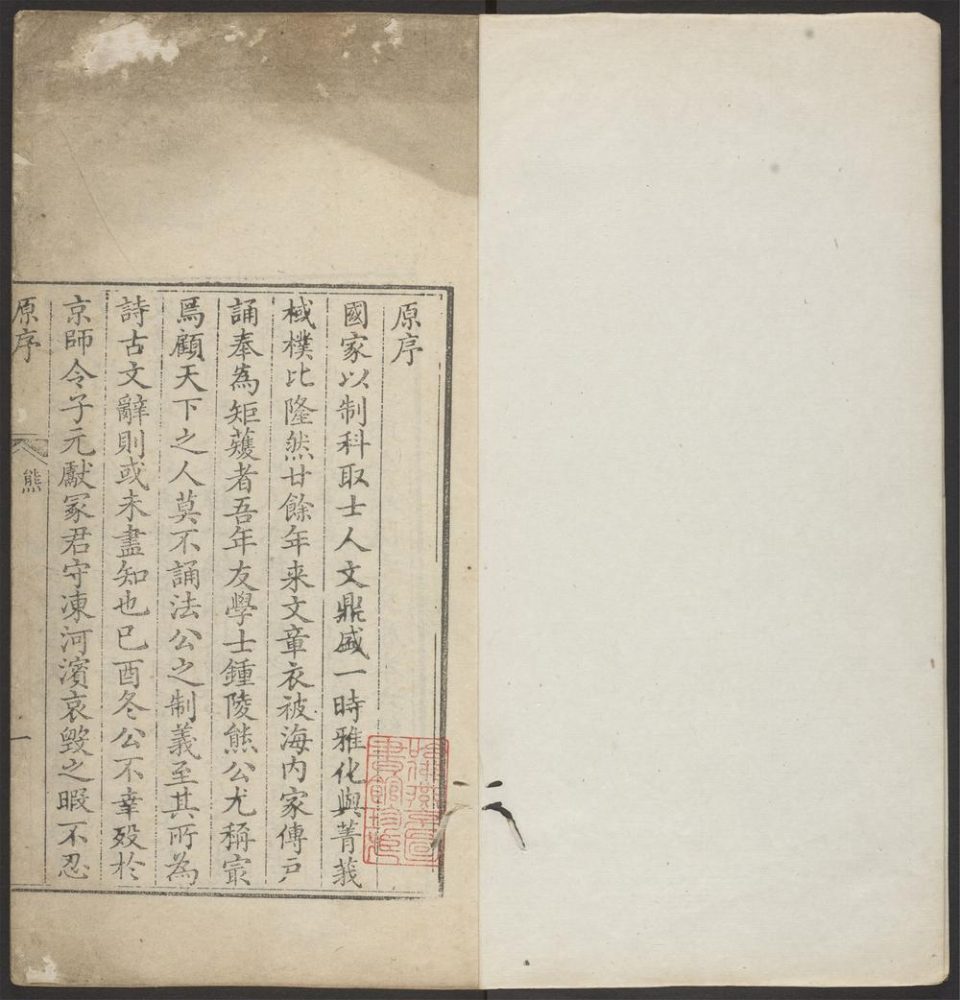 原序
國家以制科取士人文鼎盛一時雅化與菁莪
棫樸比隆然廿餘年来文章衣被海内家傳戶
誦奉為矩蒦者吾年友學士鍾陵熊公尤稱㝡
焉顧天下之人莫不誦法公之制義至其所為
詩古文辭則或未盡知也已酉冬公不幸歿於
京師令子元獻冢君守凍河濱哀毀之暇不忍
原序
熊
一
哈佛燕京圖
書館珍藏